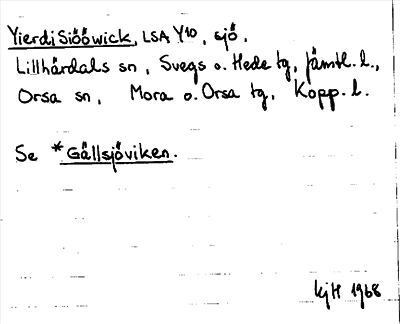 Yierdi Siööwick, LSA Y10, sjö.
Lillhärdals sn, Svegs o. Hede tg, Jämtl. l.,
Orsa sn, Mora o. Orsa tg, Kopp. l.
Se *Gällsjöviken.
kjH 1968